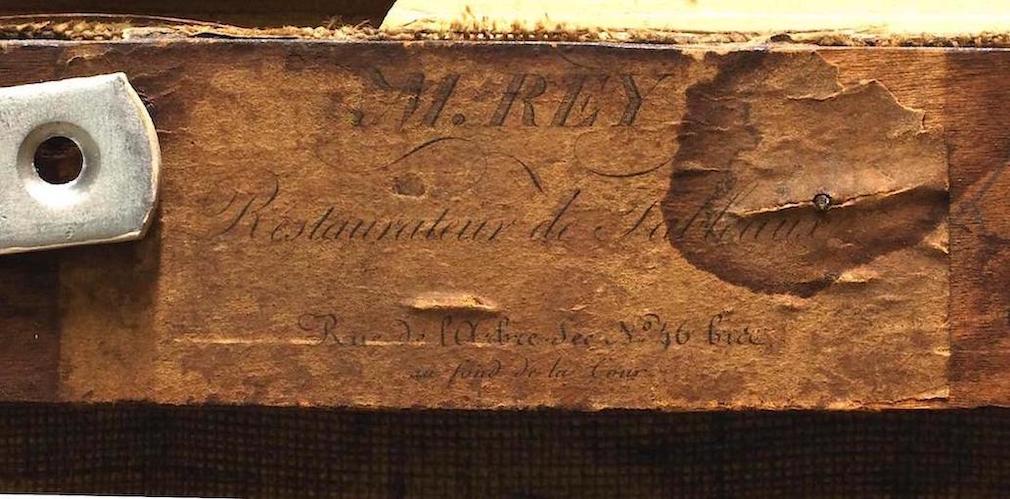 M. REY
Restaurateur de Tableaux
Rue de l'Arbre Sec Nº 46
au fond de la Cour